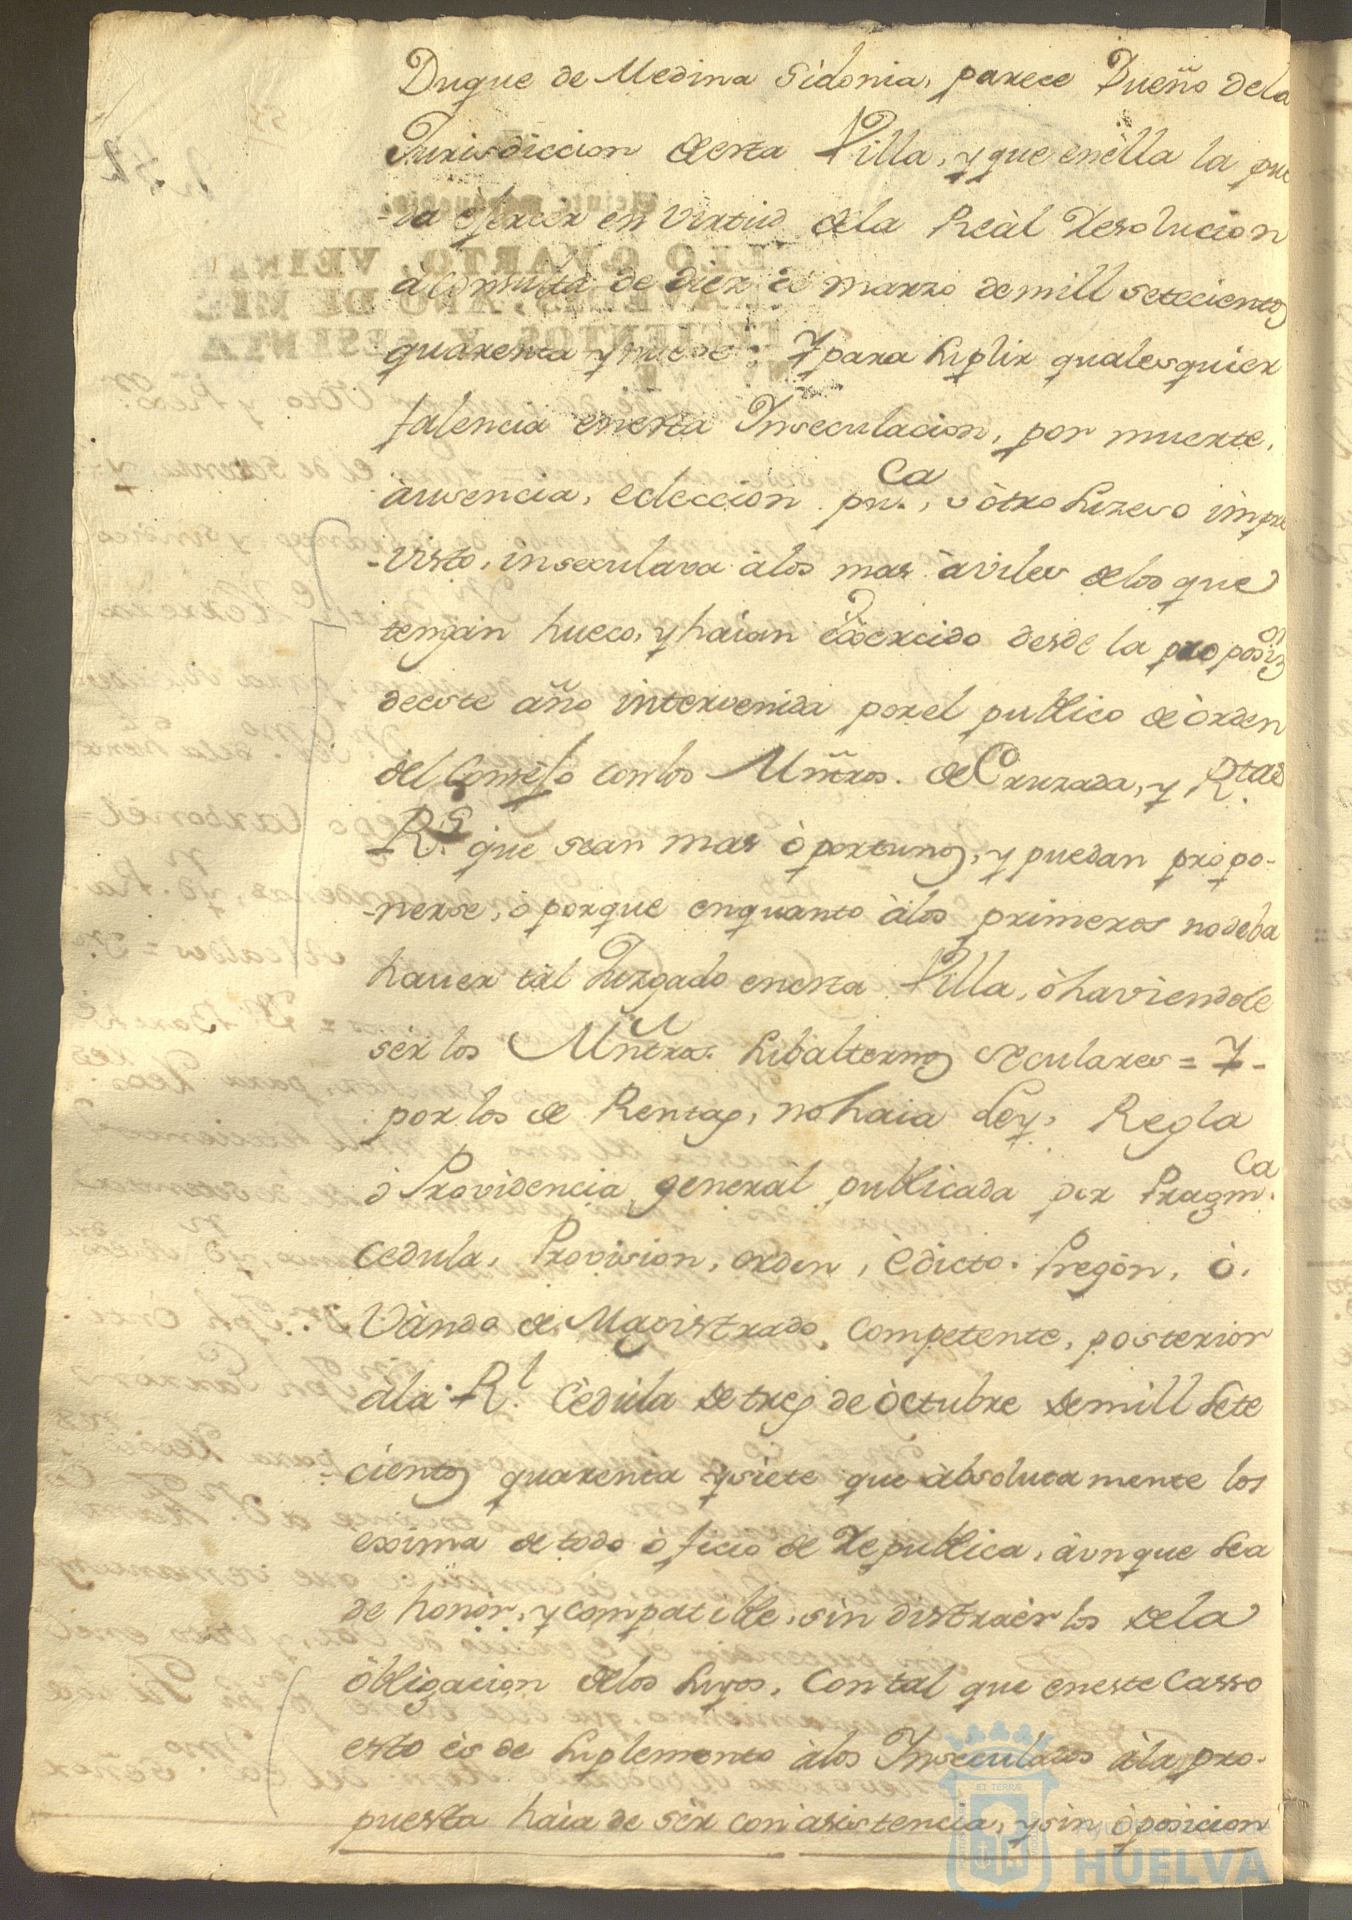 Duque de Medina Sidonia, parece Dueño dela
Jurisdiccion de esta Villa, y que en èlla la pue
-da èjercer en virtud dela Reàl Resolucion
à Consulta de diez de marzo de mill setecientos
quarenta y nueve; Y para suplir qualesquier
falencia en esta Inseculacion, por muerte,
àusencia, eleccion pu.ca, u òtro suzeso impre
-visto, inseculava à los mas àviles de los que
tengàn hueco, y haìan èxercido desde la proposiz.on
de este año intervenida por el publico de òrden
del Consejo con los Mñtros. de Cruzada, y R.tas
R.s que sean mas òportunos, y puedan propo-
-nerse, ò porque en quanto à los primeros no deba
haver tàl Juzgado en esta Villa, ò haviendole
sèr los Mñtros. subalternos seculares = Y -
por los de Rentas, no haia Ley, Regla
ò Providencia general publicada por Pragm.ca
Cedula, Provision, orden, Èdicto, Pregòn, ò
Vàndo de Magistrado Competente, posterior
ala R.l Cèdula de tres de òctubre de mill sete
-cientos quarenta y siete que àbsolutamente los
exima de todo òficio de Republica, àunque sea
de honòr, y compatible, sin distraèrlos de la
òbligacion de los suyos, Con tal que en este Casso
esto ès de suplemento à los Inseculados à la pro-
puesta haìa de sèr con àsistencia, y sin òposicion
HUELVA